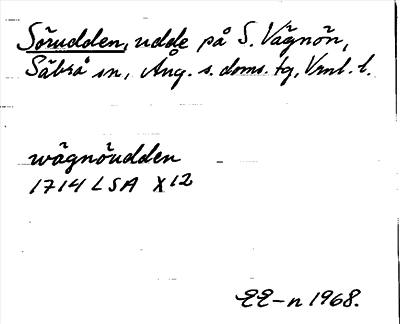 Sörudden, udde på S. Vägnön,
Säbrå sn, Ång. s. doms. tg, Vrnl. l.
wägnöudden
1714 LSA X12
EE-n 1968.